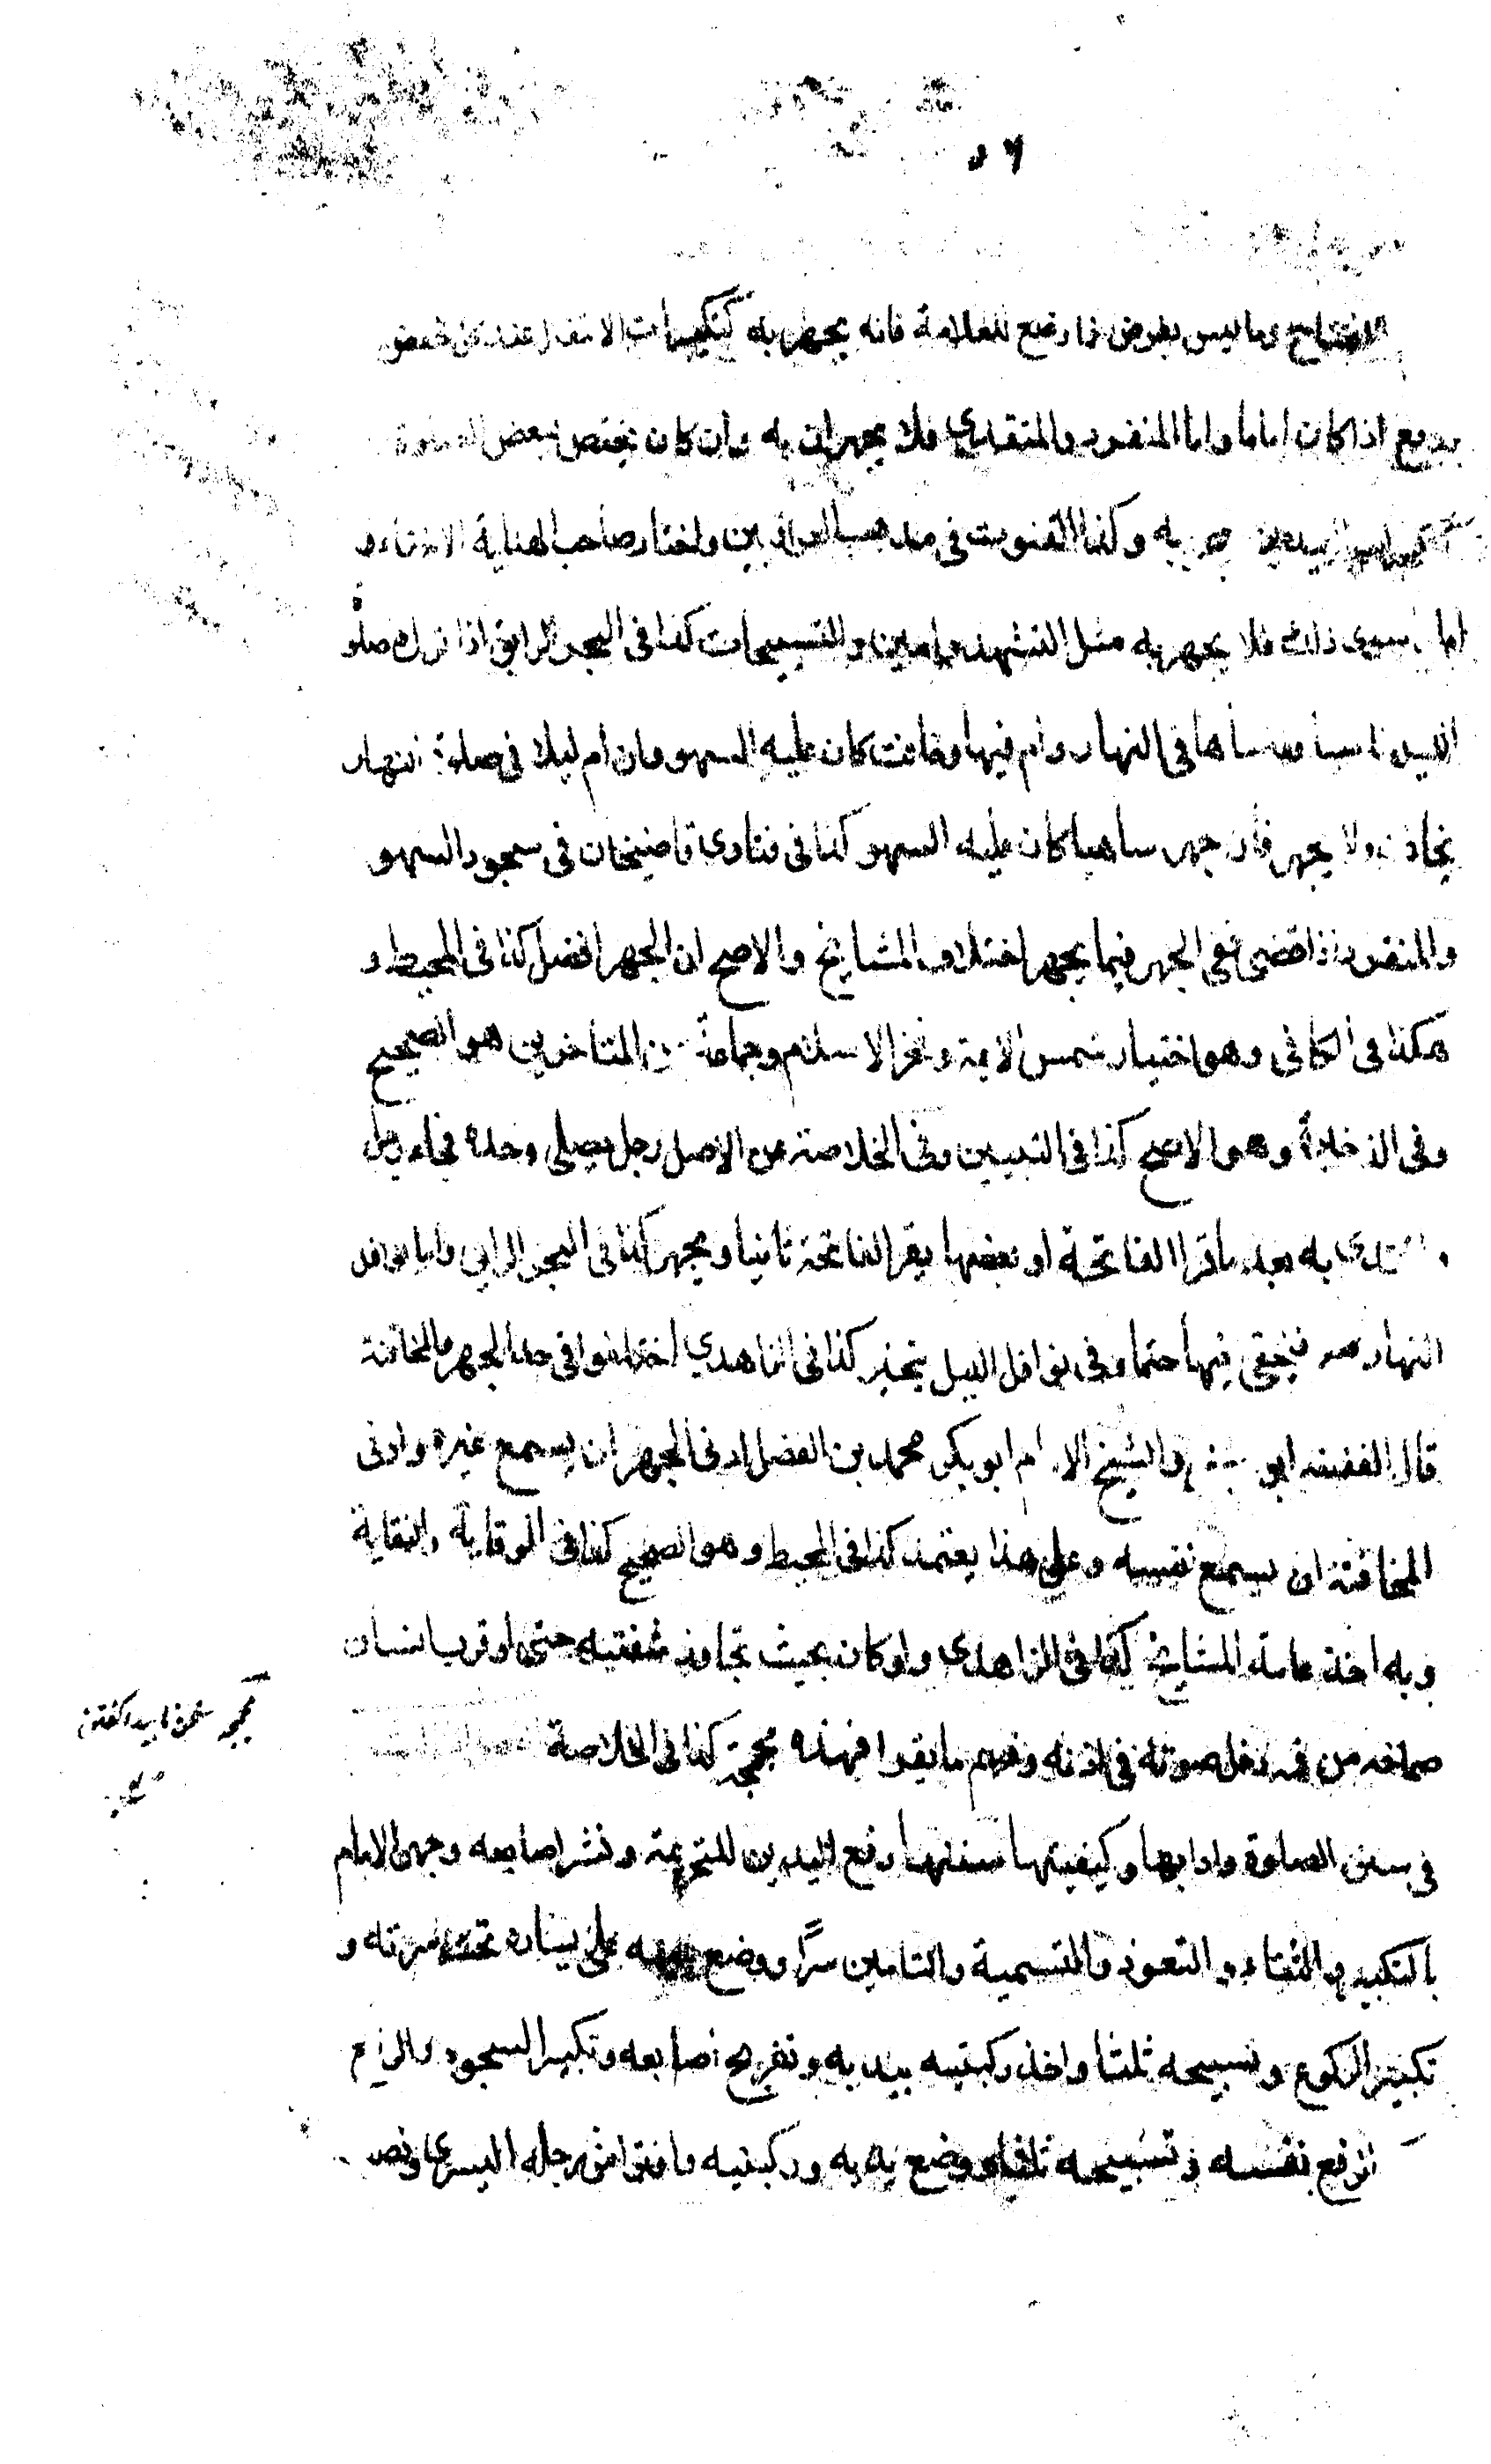 الافتتاح وما ليس بفرض فما وضع للعلامة فانه يجهر به كتكبيرات الانتقال عند كل خفض
ورفع اذا كان اماما واما المنفرد والمقتدي فلا يجهران به وان كان يختص ببعض الصلوة
كتكبيرات العيدين يجهر به وكذا القنوت في مذهب العراقيين واختار صاحب الهداية الاخفاء و
اما سوى ذلك فلا يجهر به مثل التشهد وامين والتسبيحات كذا في البحر الرايق اذا ترك صلوة
الليل ناسيا فقضاها في النهار وام فيها وخافت كان عليه السهو وان ام ليلا في صلوة النهار
يخافت ولا يجهر فان جهر ساهيا كان عليه السهو كذا في فتاوى قاضيخان في سجود السهو
والمنفرد اذا قضى ففي الجهر فيما يجهر اختلاف المشايخ والاصح ان الجهر افضل كذا في المحيط و
هكذا في الكافي وهو اختيار شمس الايمة وفخر الاسلام وجماعة من المتاخرين هو الصحيح
وفي الذخيرة وهو الاصح كذا في التبيين وفي الخلاصة عن الاصل رجل يصلي وحده فجاء رجل
واقتدى به بعد ما قرا الفاتحة او بعضها يقرا الفاتحة ثانيا ويجهر كذا في البحر الرايق واما نوافل
النهار فيخفي فيها حتما وفي نوافل الليل يتخير كذا في الزاهدي اختلفوا في حد الجهر والمخافتة
قال الفقيه ابو والشيخ الامام ابو بكر محمد بن الفضل ادنى الجهر ان يسمع غيره وادنى
المخافتة ان يسمع نفسه وعلى هذا يعتمد كذا في المحيط وهو الصحيح كذا في الوقاية والنقاية
وبه اخذ عامة المشايخ كذا في الزاهدي ولو كان بحيث تجاوز شفتيه حتى لو قرب انسان
صماخه من فيه دخل صوته في اذنه وفهم ما يقرا فهذه مجمجة كذا في الخلاصة
في سنن الصلوة وادابها وكيفيتها سننها رفع اليدين للتحريمة ونشر اصابعه وجهر الامام
بالتكبير والثناء والتعوذ والتسمية والتامين سرًا ووضع يمينه على يساره تحت سرته و
تكبير الركوع وتسبيحه ثلثا واخذ ركبتيه بيديه وتفريج اصابعه وتكبير السجود والرفع
الرفع بنفسه وتسبيحه ثلثا ووضع يديه وركبتيه وافتراش رجله اليسرى ونصب